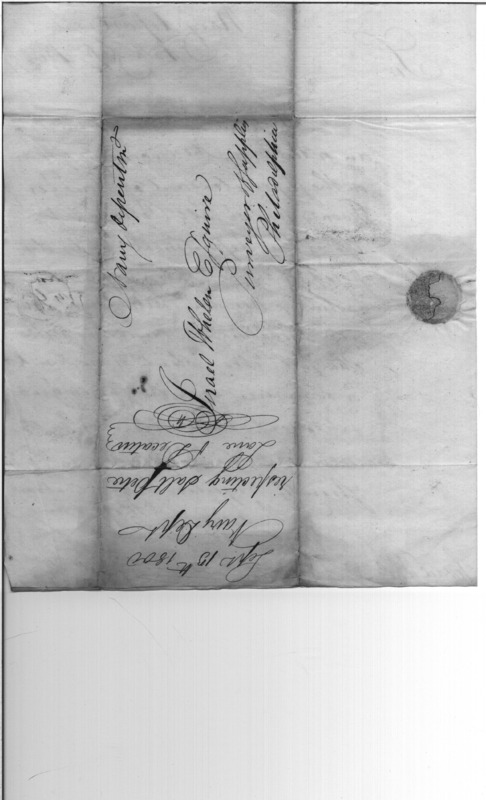 Navy Department
Israel Whelen Esquire
Purveyor of Supplies
Philadelphia
Sept 15th 1800
Navy Dept
respecting Salt Petre
Lane & Decatur